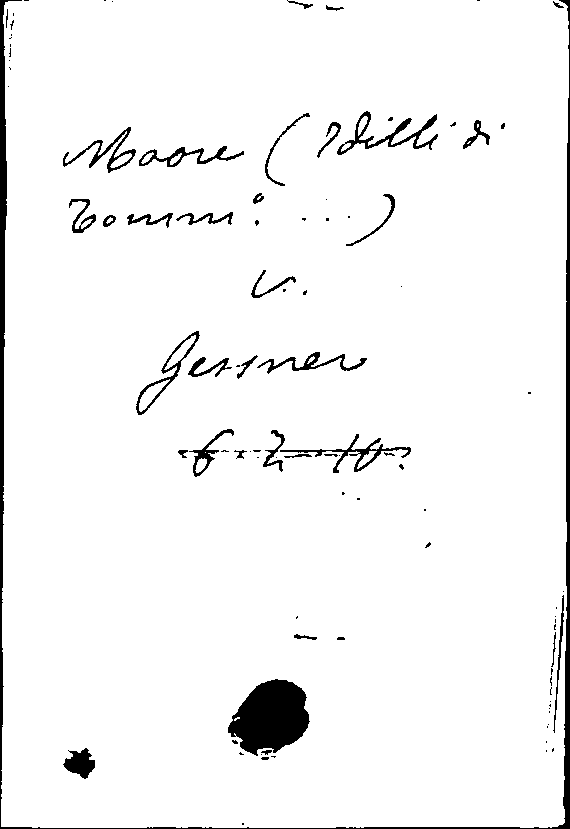 Moore (Idilli di
Tommº. ...)
v.
Gessner
6. 2. 10.